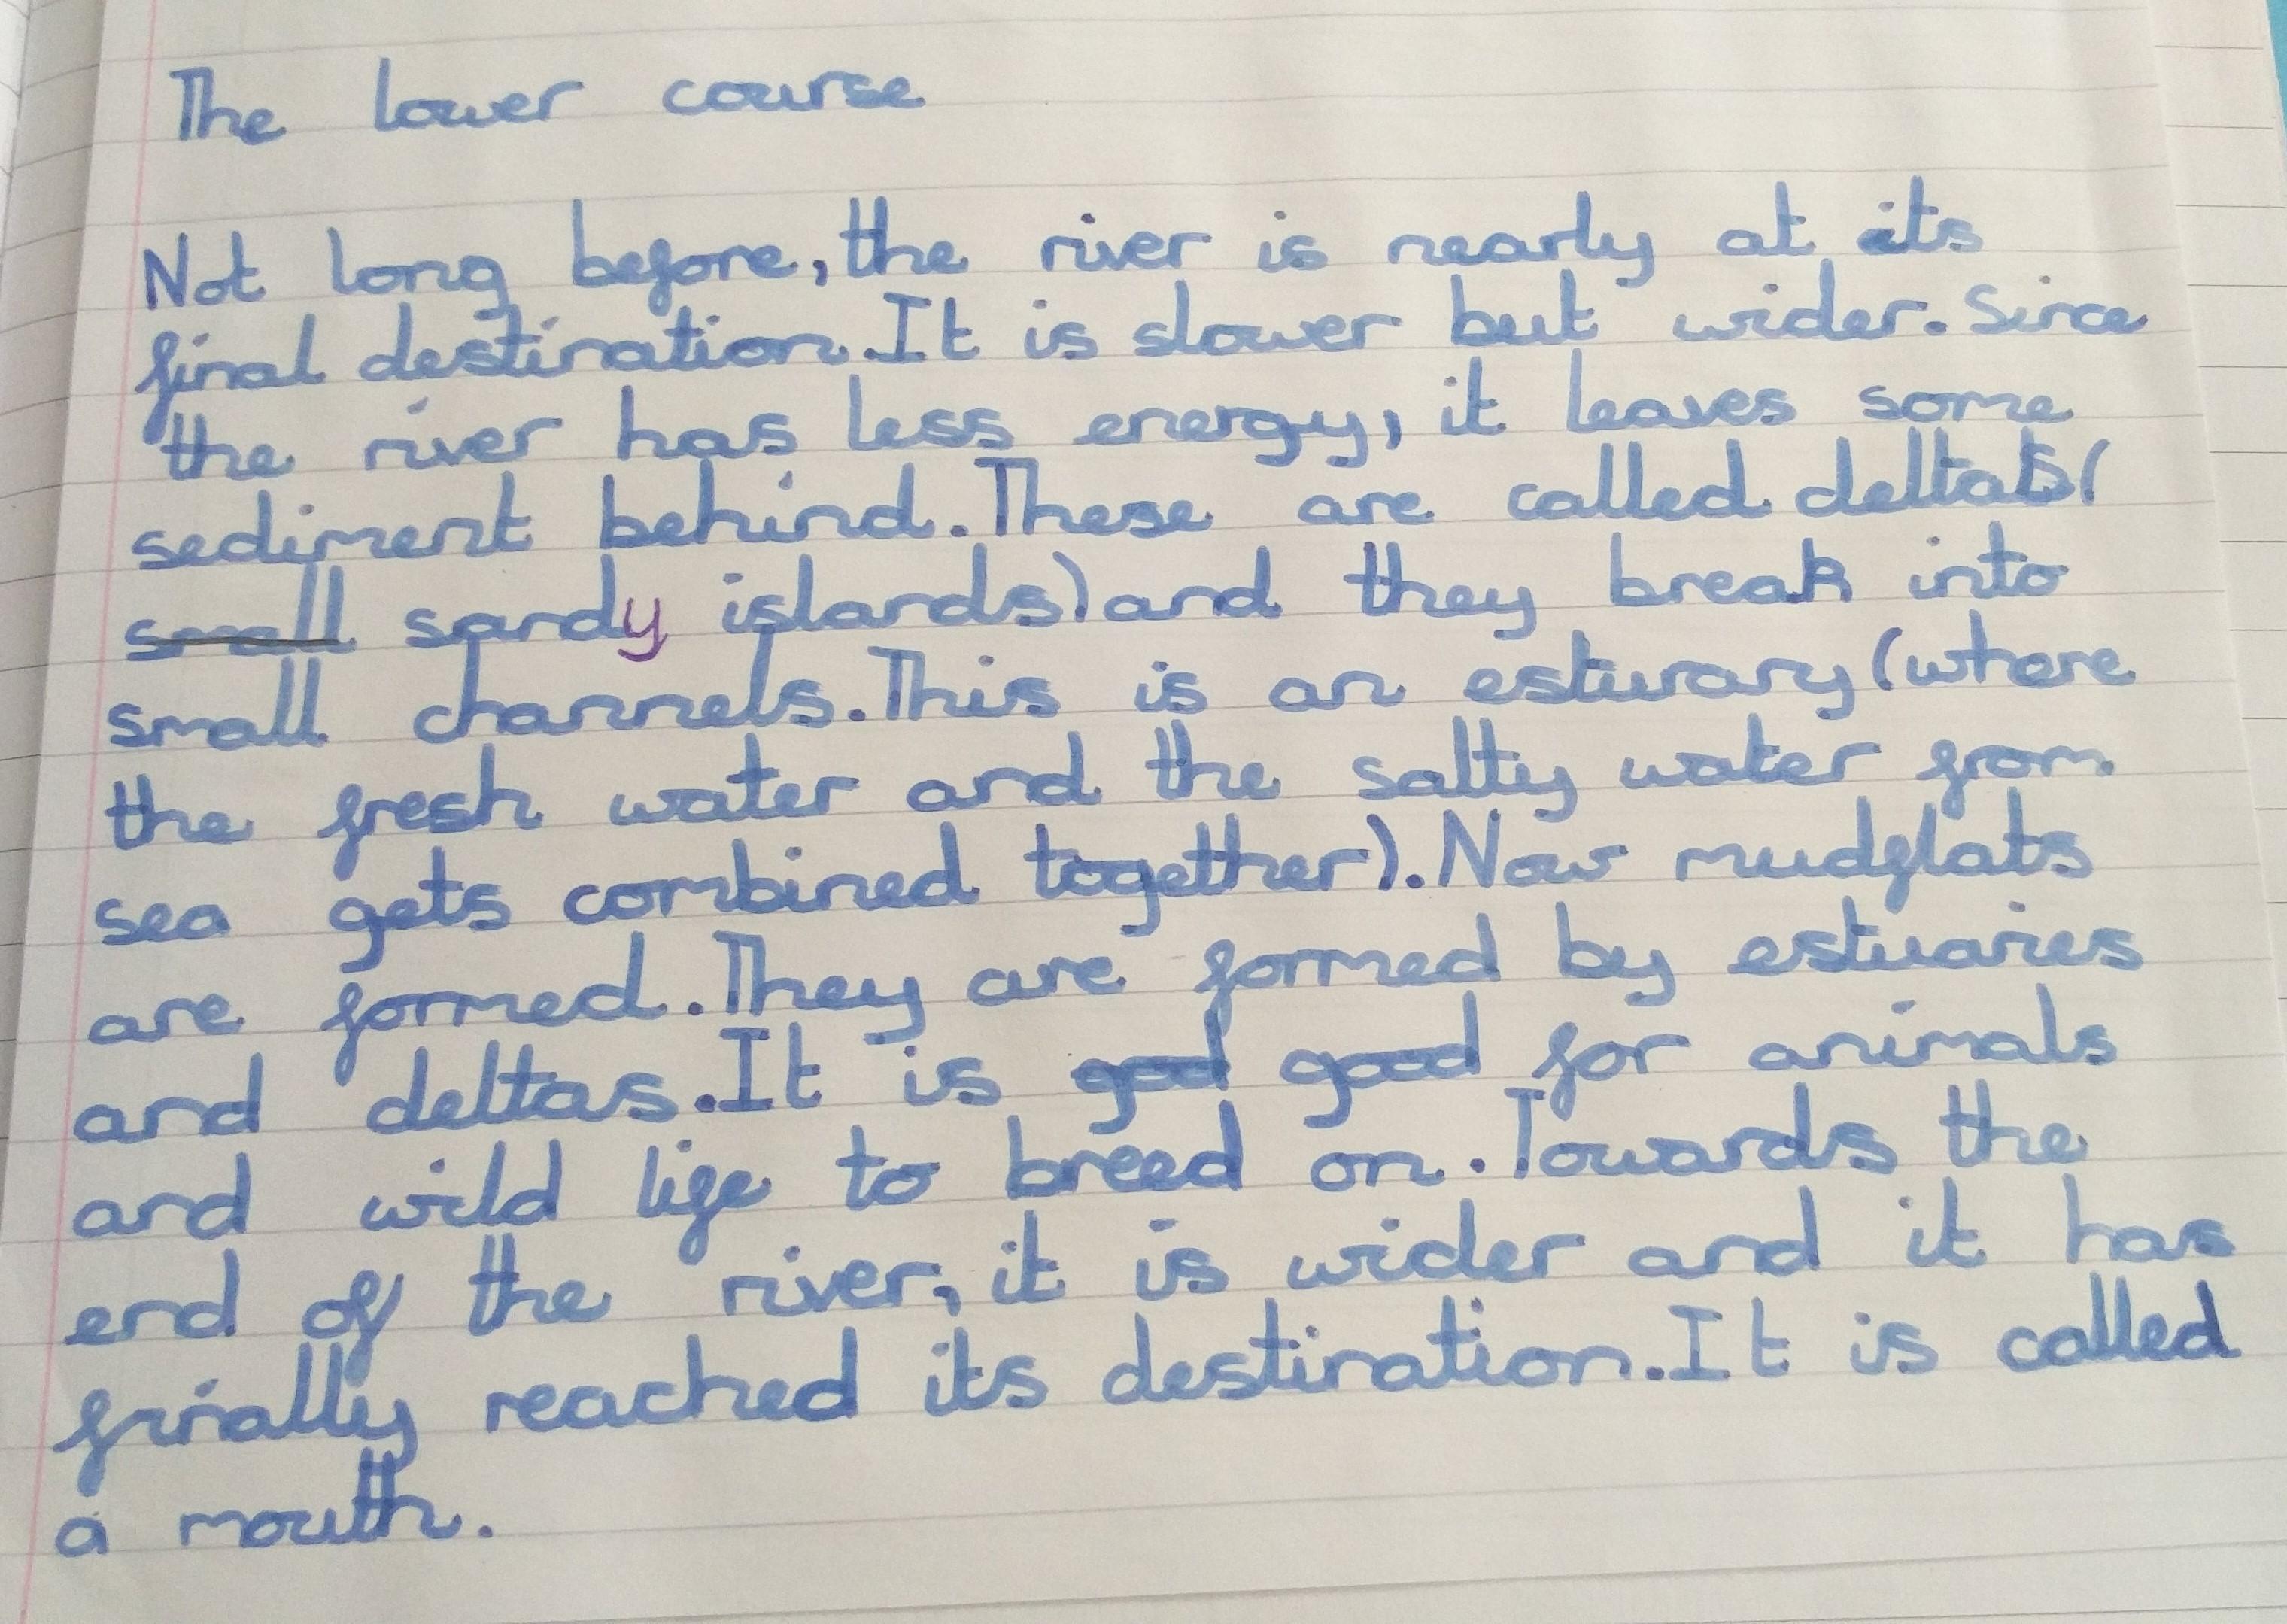 The lower course
Not long before, the river is nearly at its
final destination. It is slower but wider. Since
the river has less energy, it leaves some
sediment behind. These are called deltas(
small sandy islands) and they break into
small channels. This is an estuary (where
the fresh water and the salty water from
sea gets combined together). Now mudflats
are formed. They are formed by estuaries
and deltas. It is good good for animals
and wild life to breed on. Towards the
end of the river, it is wider and it has
finally reached its destination. It is called
a mouth.